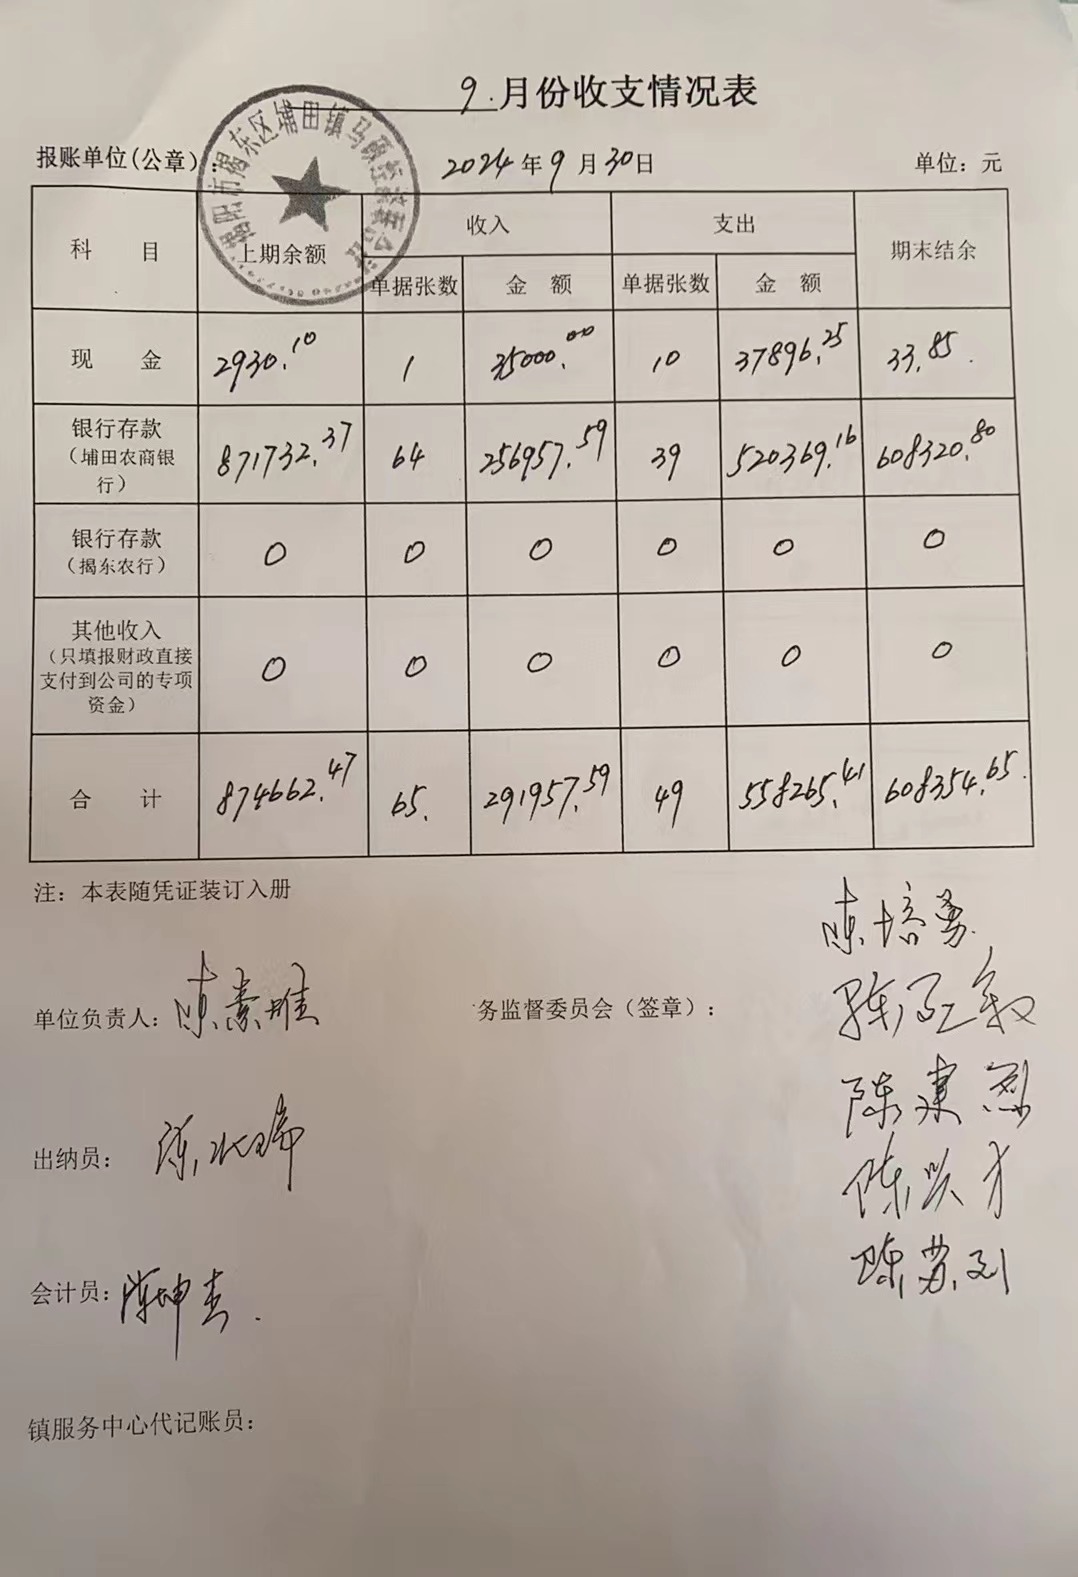 9.月份收支情况表
报账单位(公章): 2024年9月30日 单位：元
科 目 上期余额 收入 支出 期末结余
单据张数 金 额 单据张数 金 额
现 金 2930.10 1 35000.00 10 37896.25 33.85
银行存款（埔田农商银行） 871732.37 64 256957.59 39 520369.16 608320.80
银行存款（揭东农行） 0 0 0 0 0 0
其他收入（只填报财政直接支付到公司的专项资金） 0 0 0 0 0 0
合 计 874662.47 65. 291957.59 49 558265.41 608354.65.
注：本表随凭证装订入册
陈培勇
单位负责人：陈 务监督委员会（签章）：
陈
陈建烈
出纳员：陈
陈兴才
陈苏
会计员：陈坤
镇服务中心代记账员：
揭阳市揭东区埔田镇马